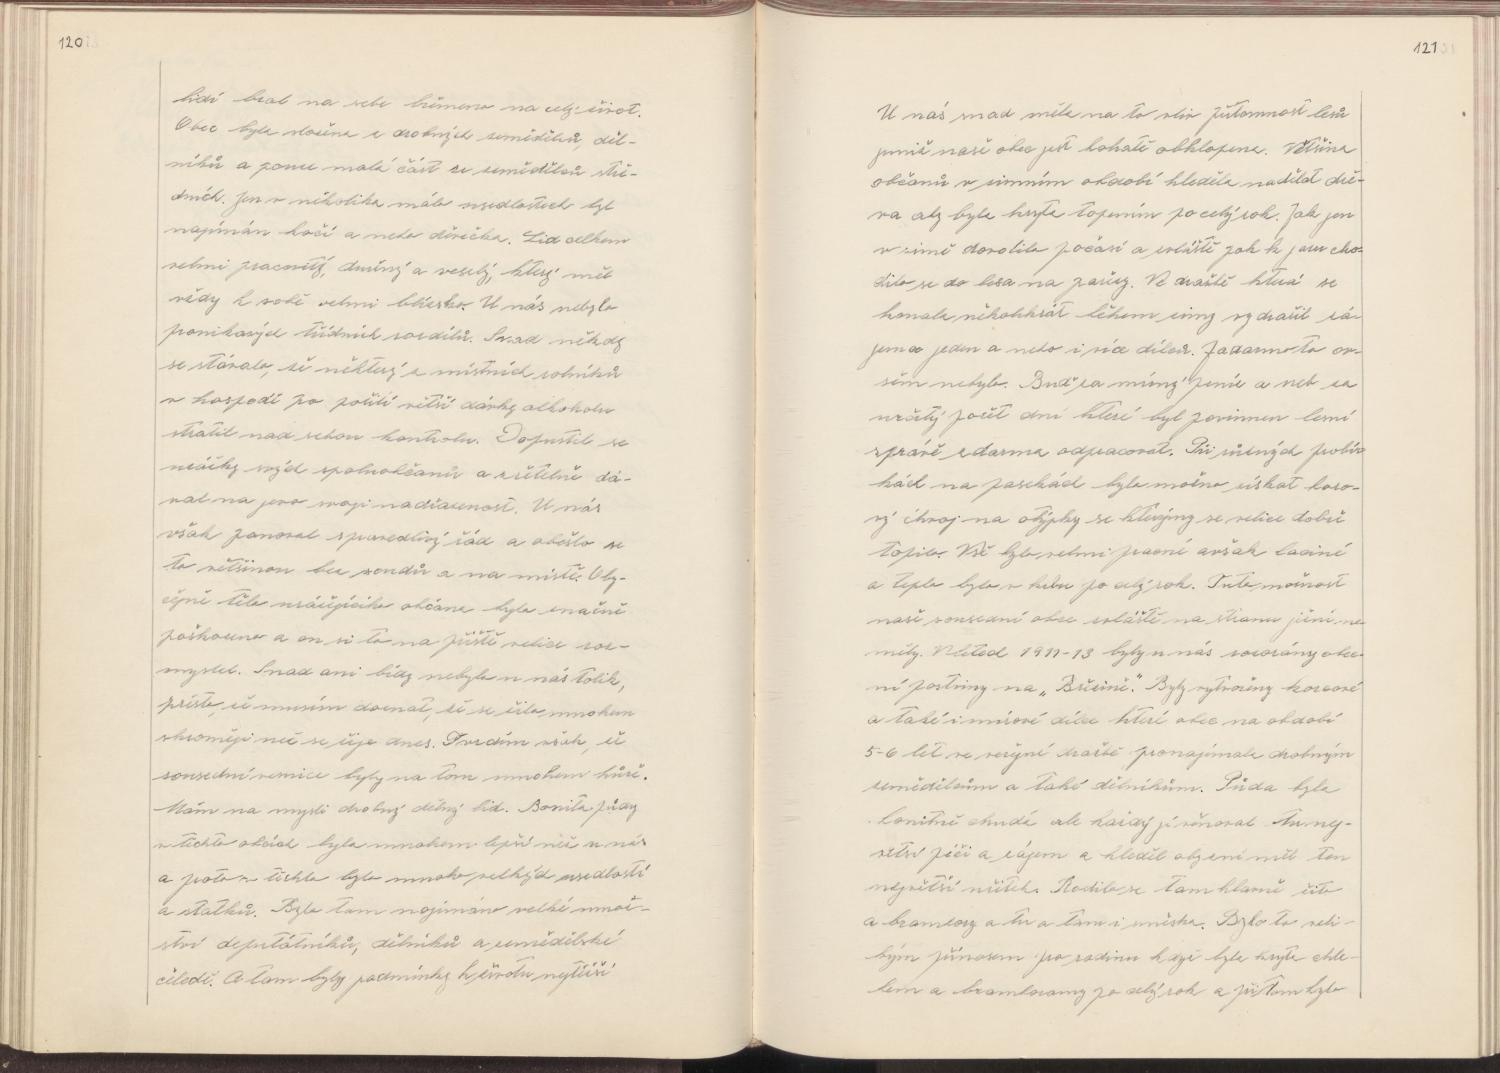 120
lidí bral na sebe břemeno na celý život.
Obec byla složena z drobných zemědělců, děl-
níků a pouze malá část ze zemědělců stře-
dních. Jen v několika málo usedlostech byl
najímán kočí a nebo děvečka. Lid celkem
velmi pracovitý, družný a veselý, který měl
vždy k sobě velmi blízko. U nás nebylo
pronikavých třídních rozdílů. Snad někdy
se stávalo, že některý z místních rolníků
v hospodě po požití větší dávky alkoholu
ztratil nad sebou kontrolu. Dopustil se
urážky svých spoluobčanů a zřetelně dá-
val na jevo svoji nadřazenost. U nás
však panoval spravedlivý řád a obešlo se
to většinou bez soudů a na místě. Oby-
čejně tělo urážejícího občana bylo značně
poškozeno a on si to na příště velice roz-
myslel. Snad ani bídy nebylo u nás tolik,
přesto, že musím doznat, že se žilo mnohem
skromněji než se žije dnes. Tvrdím však, že
sousední vesnice byly na tom mnohem hůře.
Mám na mysli drobný dělný lid. Bonita půdy
v těchto obcích byla mnohem lepší než u nás
a proto v těchto bylo mnoho velkých usedlostí
a statků. Bylo tam najímáno velké množ-
ství deputátníků, dělníků a zemědělské
čeledě. A tam byly podmínky k životu nejtěžší
121
U nás snad měla na to vliv přítomnost lesů
jimiž naše obec jest bohatě obklopena. Většina
občanů v zimním období hleděla nadělat dře-
va aby byla kryta topením po celý rok. Jak jen
v zimě dovolilo počasí a zvláště pak k jaru cho-
dilo se do lesa na pařezy. V dražbě která se
konala několikrát během zimy vydražil zá-
jemce jeden a nebo i více dílců. Zadarmo to ov-
šem nebylo. Buď za mírný peníz a neb za
určitý počet dní které byl povinnen lesní
správě zdarma odpracovat. Při různých probír-
kách na pasekách bylo možno získat boro-
vý chvoj na otýpky se kterými se velice dobře
topilo. Vše bylo velmi pracné avšak laciné
a teplo bylo v ... po celý rok. Tuto možnost
naše sousední obce zvláště na stranu jižní ne-
měly. V letech 1911-13 byly u nás rozorány obec-
ní pastviny na „Březině". Byly vytvořeny korcové
a také i mírové dílce které obec na období
5-6 let ve veřejné dražbě pronajímala drobným
zemědělcům a také dělníkům. Půda byla
bonitně chudá ale každý jí věnoval tu nej-
větší péči a zájem a hleděl aby z ní měl ten
největší užitek. Rodilo se tam hlavně žito
a brambory a tu a tam i směska. Bylo to veli-
kým přínosem pro rodinu když byla kryta chle-
bem a bramborami po celý rok a při tom bylo